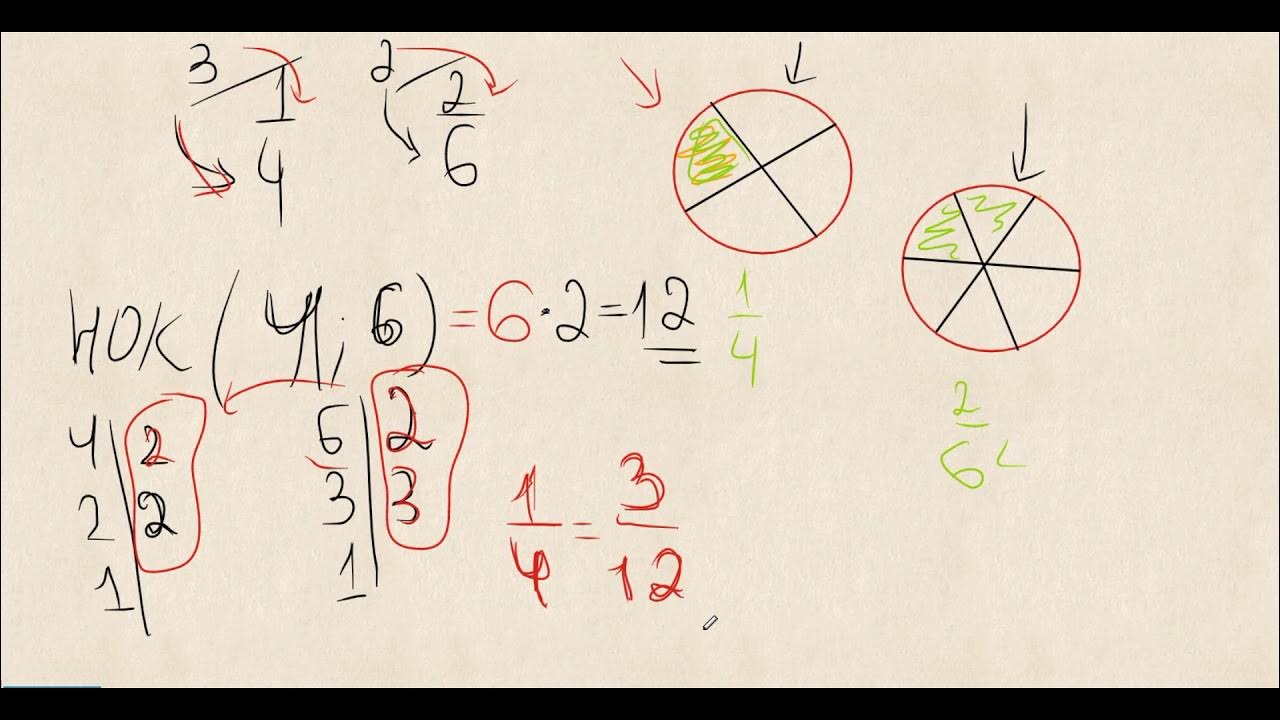 3 1/4 2 2/6
НОК (4; 6) = 6 · 2 = 12
1/4
2/6
4 | 2 6 | 2
2 | 2 3 | 3
1 | 1 |
1/4 = 3/12